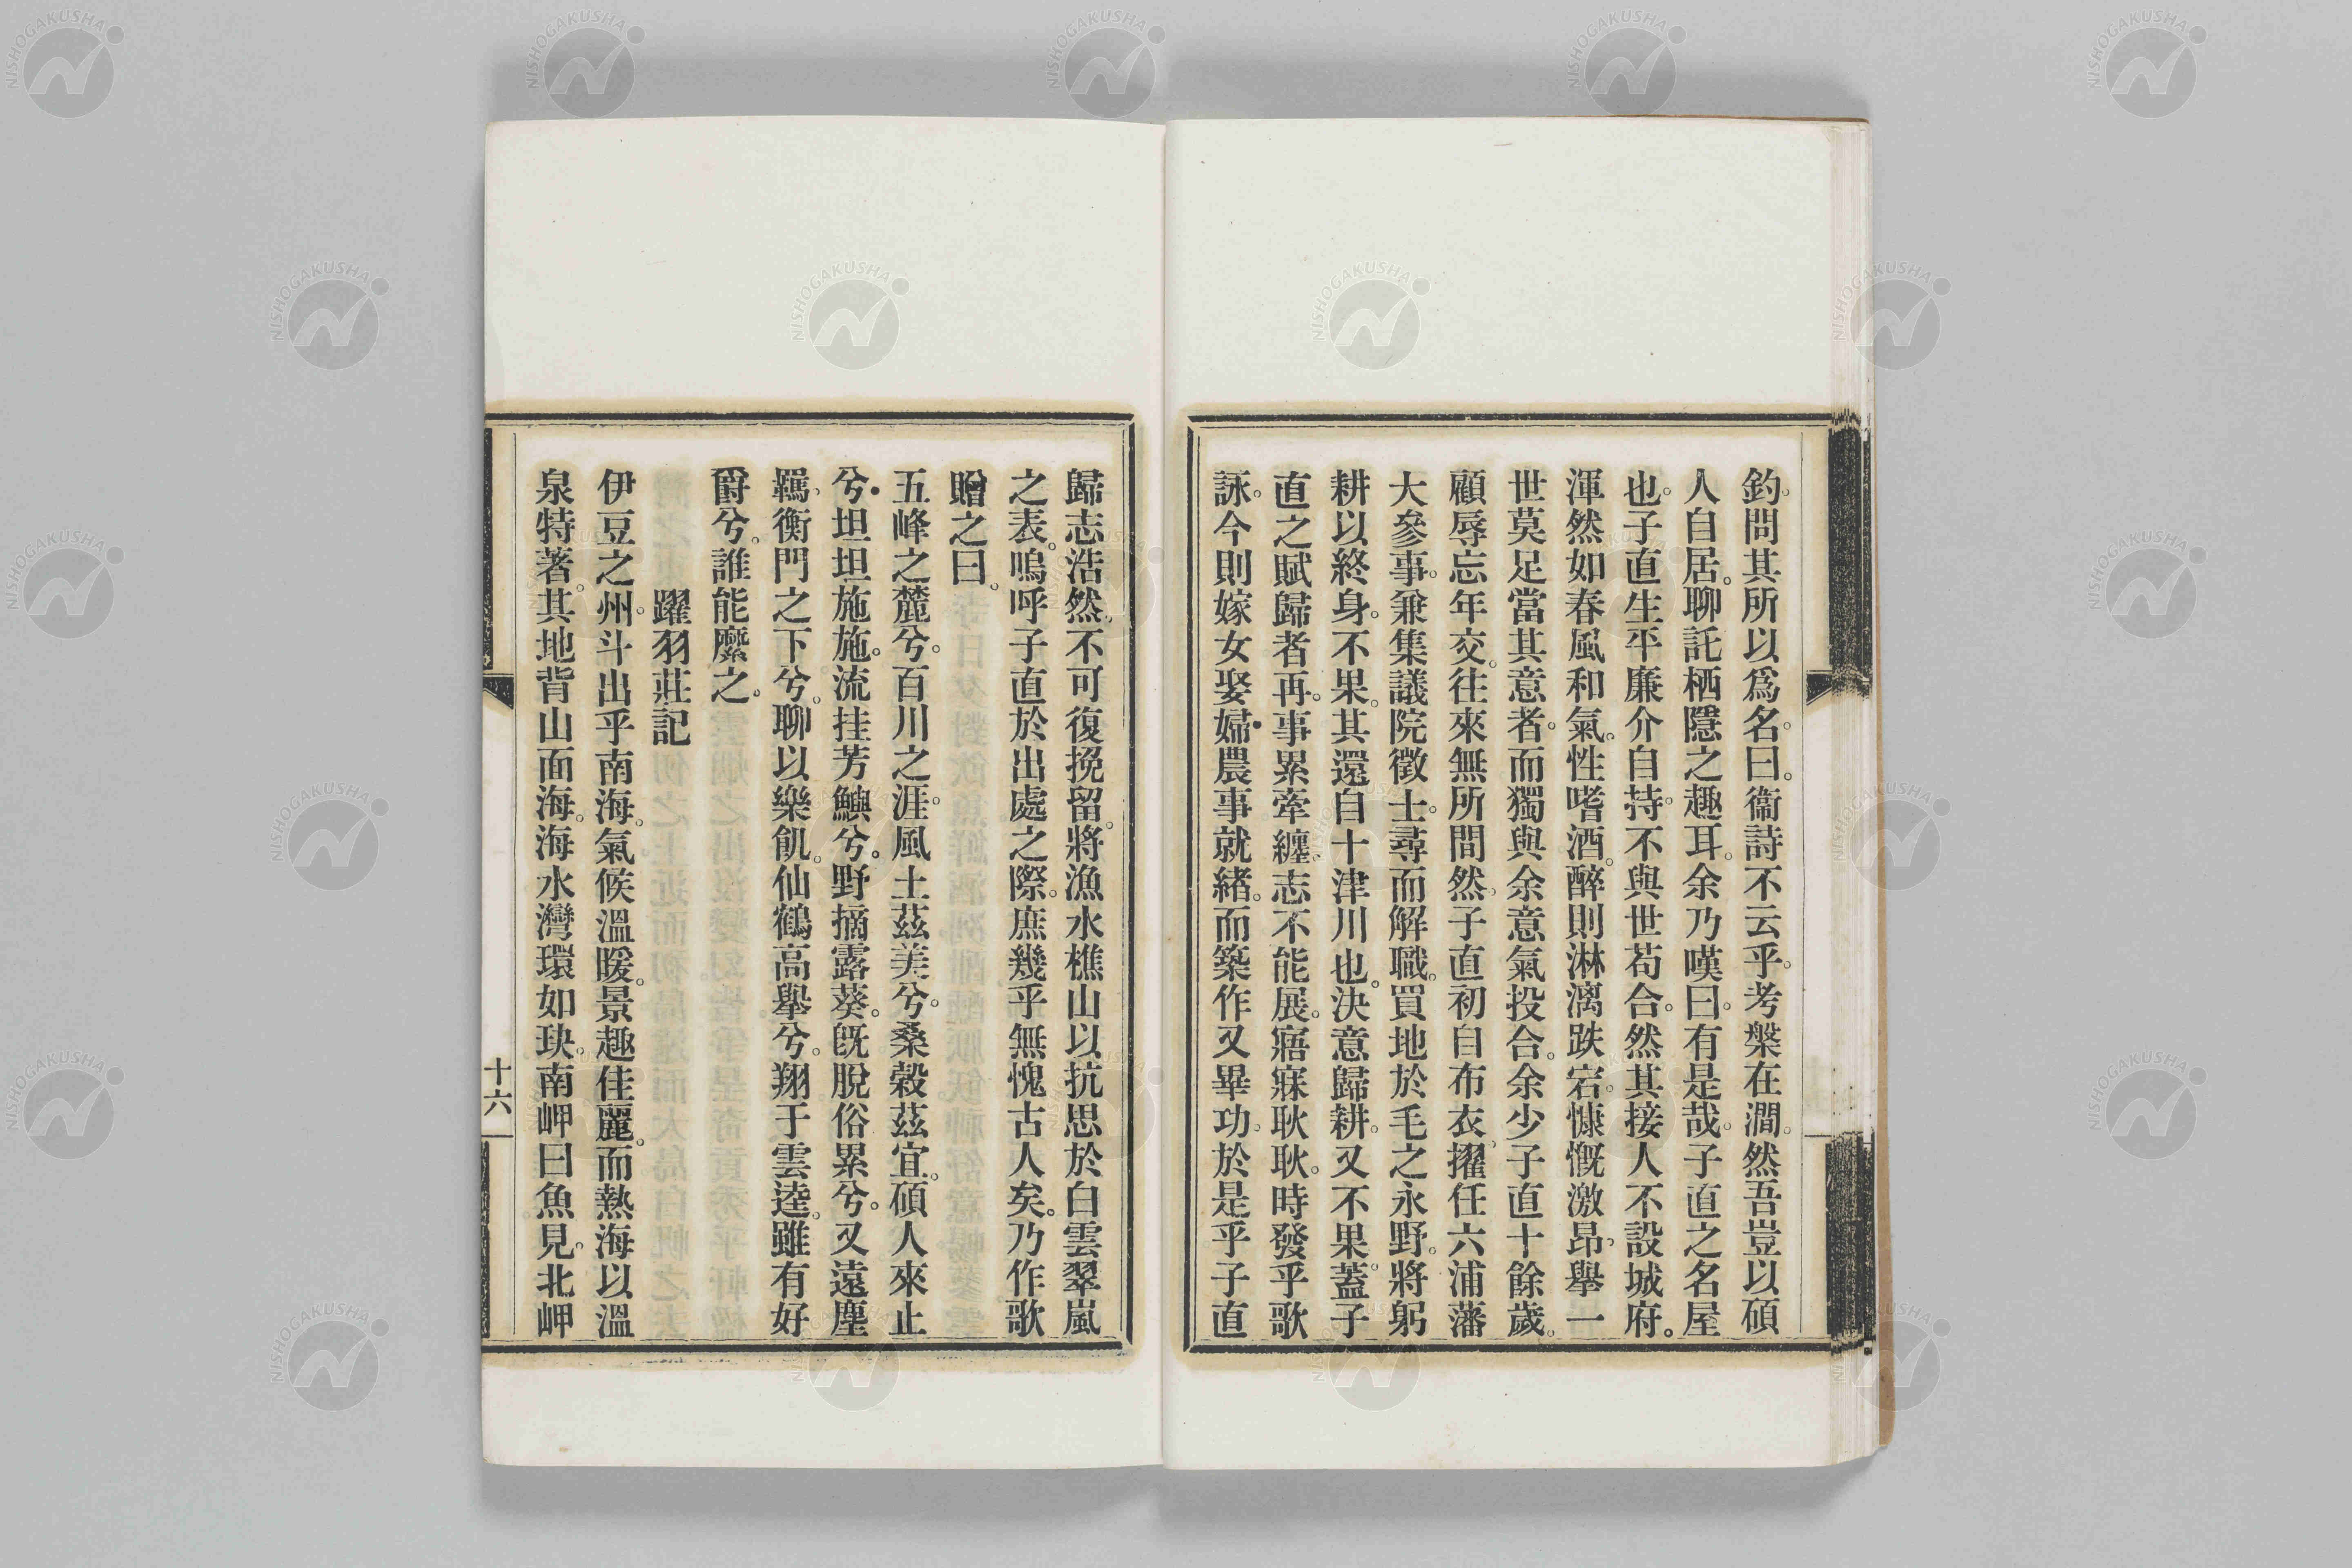 釣。問其所以爲名。曰。衞詩不云乎。考槃在澗。然吾豈以碩
人自居。聊託栖隱之趣耳。余乃嘆曰。有是哉。子直之名屋
也。子直生平廉介自持。不與世苟合。然其接人不設城府。
渾然如春風和氣。性嗜酒。醉則淋漓跌宕。慷慨激昂。擧一
世莫足當其意者。而獨與余意氣投合。余少子直十餘歲。
顧辱忘年交。往來無所間然。子直初自布衣。擢任六浦藩
大參事。兼集議院徵士。尋而解職。買地於毛之永野。將躬
耕以終身。不果。其還自十津川也。決意歸耕。又不果。蓋子
直之賦歸者再。事累牽纏。志不能展。寤寐耿耿。時發乎歌
詠。今則嫁女娶婦。農事就緒。而築作又畢功。於是乎子直
歸志浩然。不可復挽留。將漁水樵山以抗思於白雲翠嵐
之表。嗚呼子直於出處之際。庶幾乎無愧古人矣。乃作歌
贈之曰。
五峰之麓兮。百川之涯。風土茲美兮。桑穀茲宜。碩人來止
兮。坦坦施施。流挂芳鰅兮。野摘露葵。旣脫俗累兮。又遠塵
羈。衡門之下兮。聊以樂飢。仙鶴高擧兮。翔于雲逵。雖有好
爵兮。誰能縻之。
躍羽莊記
伊豆之州。斗出乎南海。氣候溫暖。景趣佳麗。而熱海以溫
泉特著。其地背山面海。海水灣環如玦。南岬曰魚見。北岬
十六
NISHOGAKUSHA